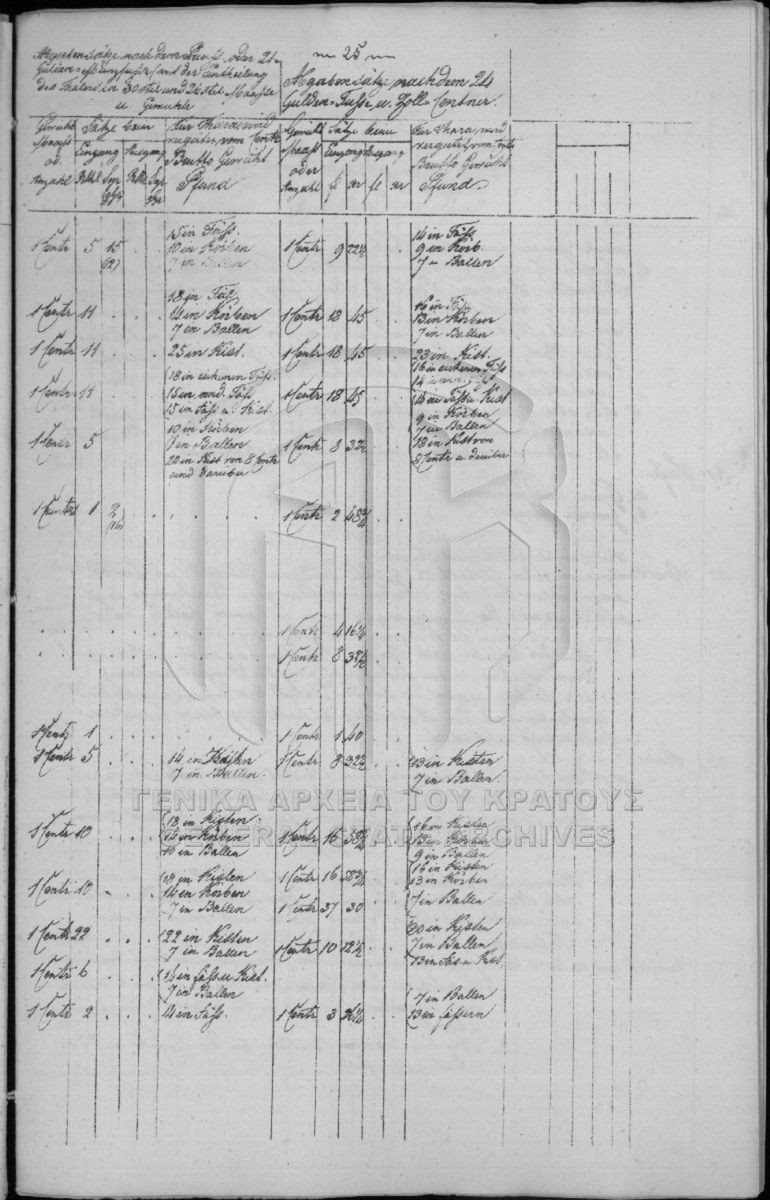 25
Abgabensätze nach dem Fuß, oder 21
Gulden
des Thalers in 30 stel und 24 stel, Maaße
u. Gewichte
Abgabensätze, nach dem 24
Gulden-Fuße, u. Zoll-Centner.
Gewicht Sätze beim Für Thara wird Gewicht Sätze beim Für Thara, wird
Maaß Eingang Ausgang vergütet vom Centr Maaß Eingang Ausgang vergütet vom Centr
od. Brutto Gewicht oder Brutto Gewicht
Anzahl Pfund Anzahl fl xr fl xr Pfund
15 in Fäss. 14 in Fäss
1 Centr 5 15 10 in Körben 1 Centr 9 22½ 9 in Körb.
(12) 7 in Ballen 7 " Ballen
18 in Fäss 16 in Fäss
1 Centr 11 14 in Körben 1 Centr 18 45 13 in Körben
7 in Ballen 7 in Ballen
1 Centr 11 25 in Kist. 1 Centr 18 45 23 in Kist.
18 in eichenen Fäss. 16 in eichenen Fäss
1 Centr 11 15 in Fäss 1 Centr 18 45 14 in Fäss u. Kist
15 in Fäss u. Kist. 9 in Körben
10 in Körben 7 in Ballen
1 Centr 5 7 in Ballen 1 Centr 8 32½ 18 in Kist von
20 in Kist von 8 Centr 8 Centr u. darüber
und darüber
1 Centr 1 2 1 Centr 2 48¾
(16)
1 Centr 4 16¼
1 Centr 8 32½
1 Centr 1 1 Centr 1 40
1 Centr 5 14 in Kisten 1 Centr 8 32½ 13 in Kisten
7 in Ballen. 7 in Ballen.
18 in Kisten 16 in Kisten
1 Centr 10 14 in Körben 1 Centr 16 58¾ 13 in Körben
10 in Ballen 9 in Ballen
18 in Kisten 1 Centr 16 58¾ 16 in Kisten
1 Centr 10 14 in Körben 13 in Körben
7 in Ballen 1 Centr 37 30 7 in Ballen
1 Centr 22 22 in Kisten 20 in Kisten
7 in Ballen 1 Centr 10 12½ 7 in Ballen
1 Centr 6 14 in Fässeu Kist. 13 in Fäs. u. Kist.
7 in Ballen 7 in Ballen
1 Centr 2 14 in Fäss. 1 Centr 3 26¼ 13 in Fässern
ΓΕΝΙΚΑ ΑΡΧΕΙΑ ΤΟΥ ΚΡΑΤΟΥΣ
GENERAL STATE ARCHIVES